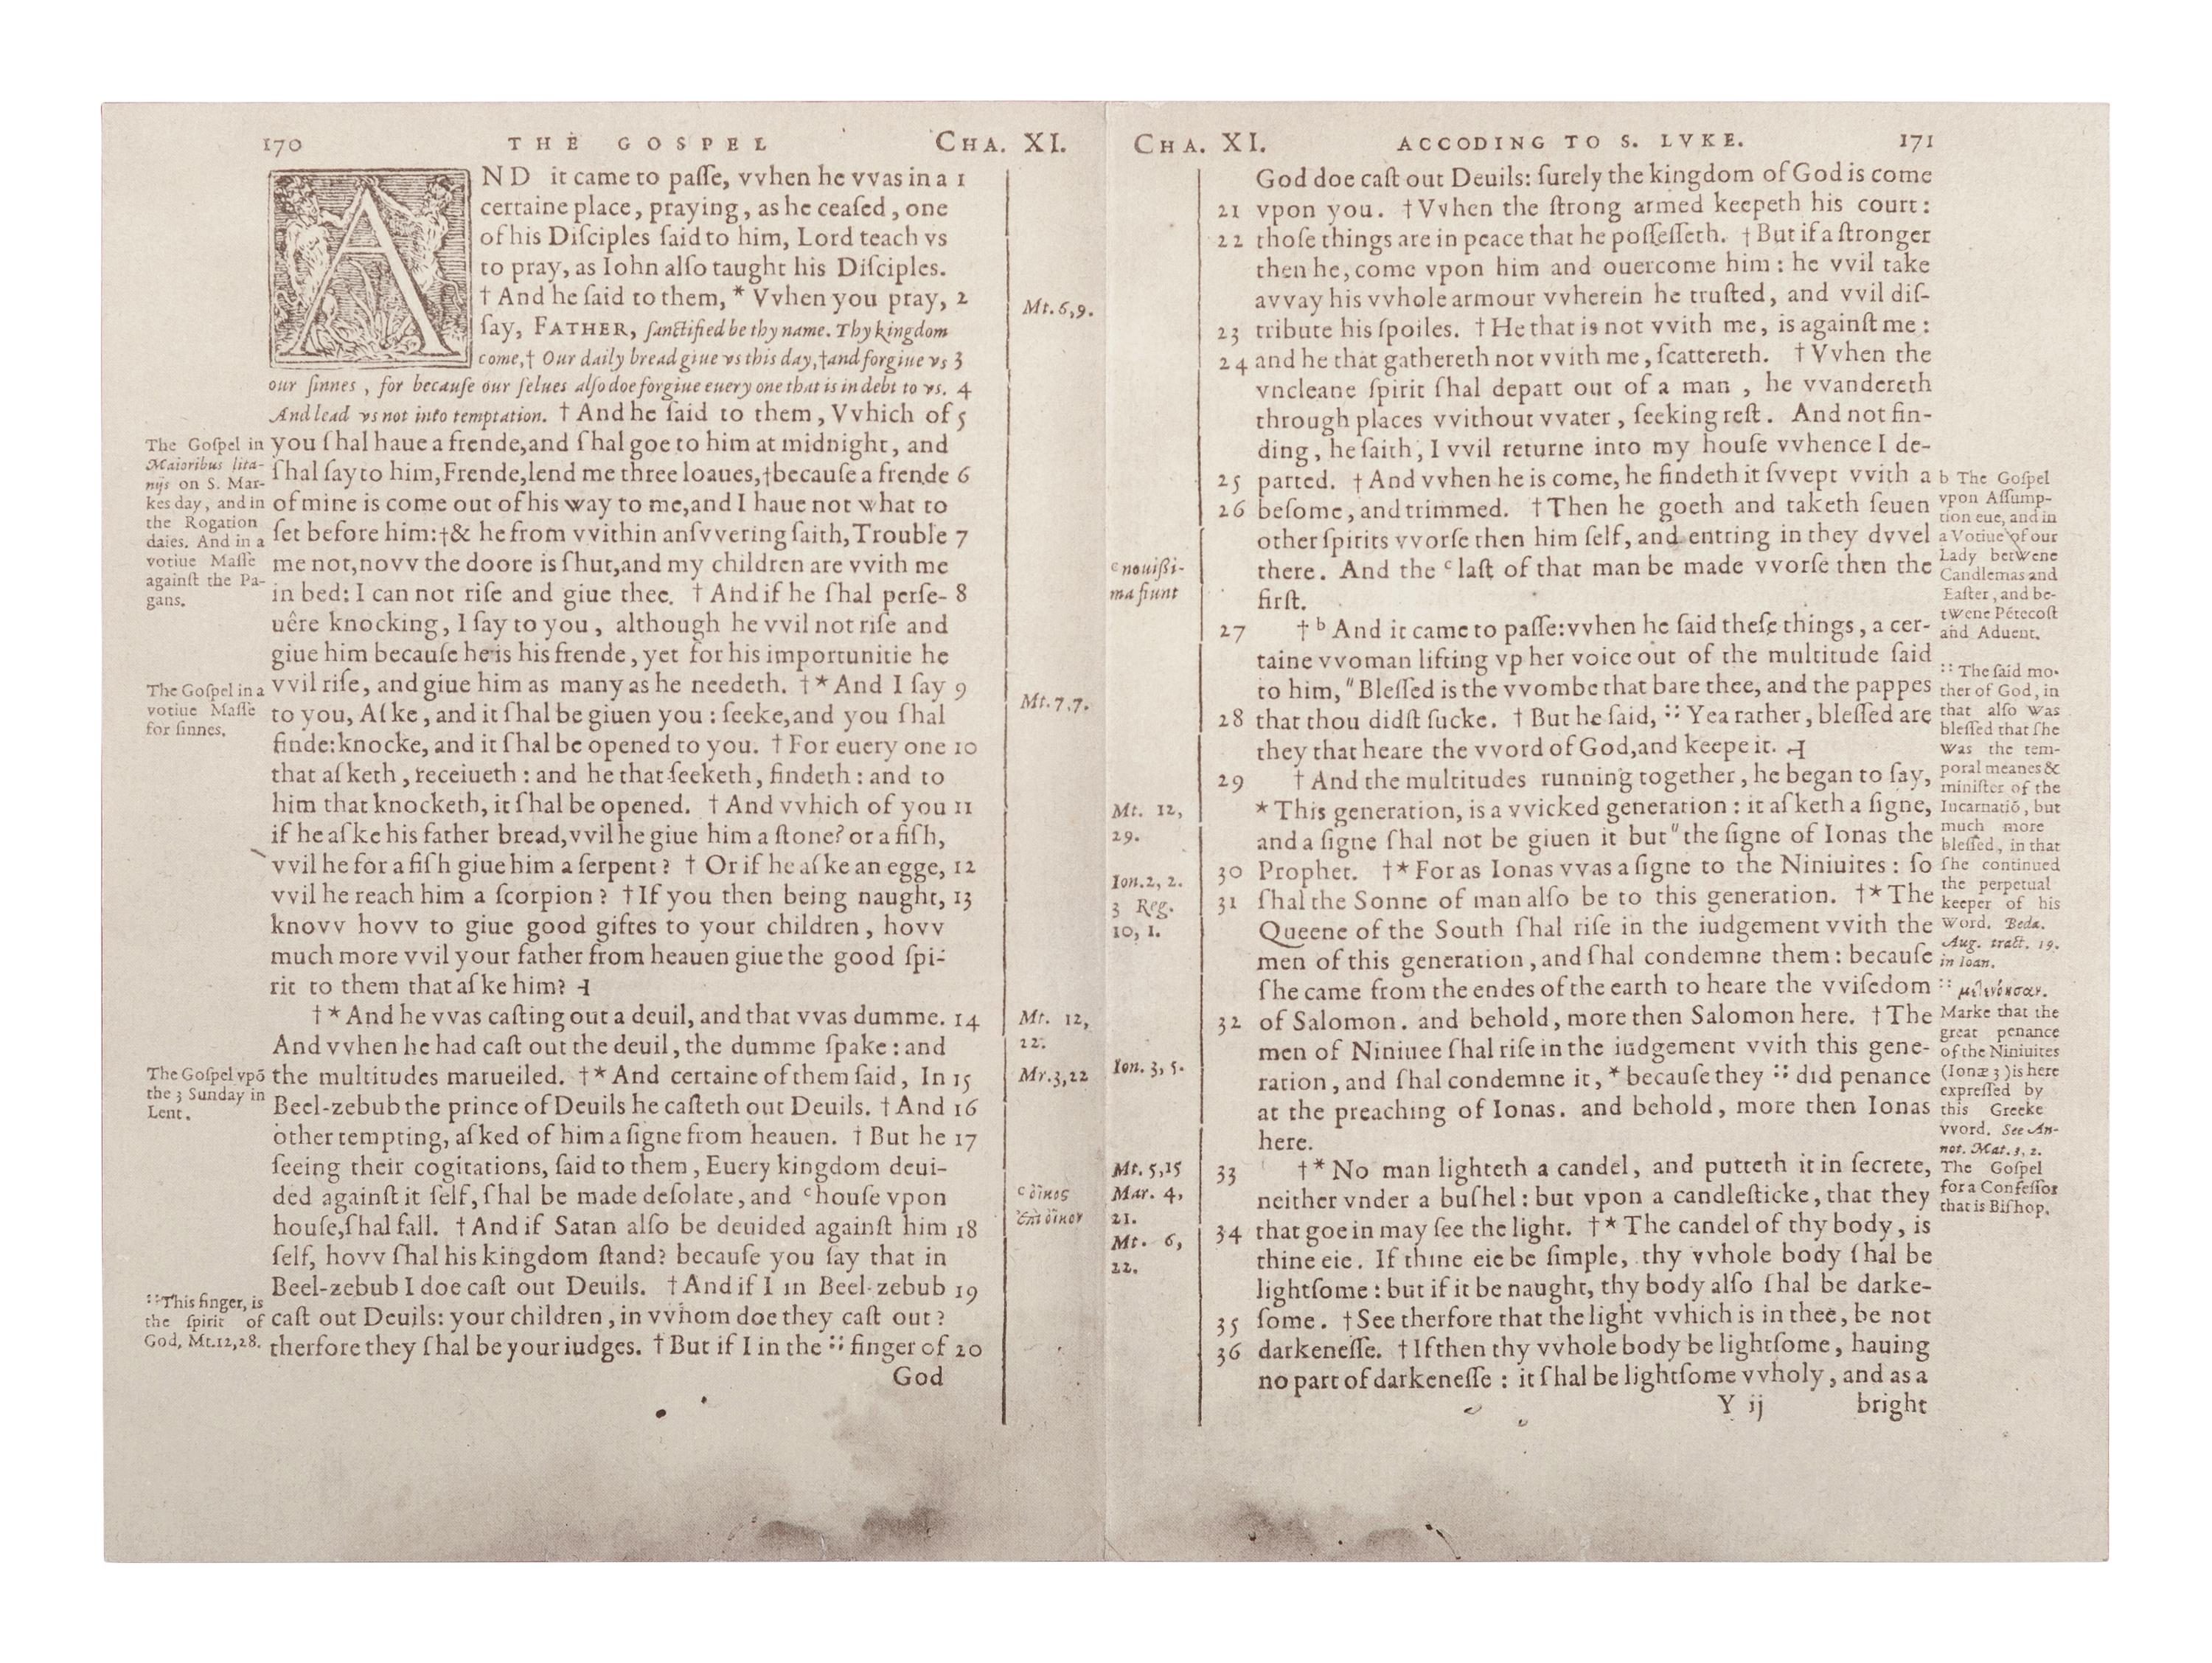 170 THE GOSPEL CHA. XI.
AND it came to paſſe, vvhen he vvas in a 1
certaine place, praying, as he ceaſed, one
of his Diſciples ſaid to him, Lord teach vs
to pray, as Iohn alſo taught his Diſciples.
† And he ſaid to them, * Vvhen you pray, 2
ſay, FATHER, ſanctified be thy name. Thy kingdom
come,† Our daily bread giue vs this day,†and forgiue vs 3
our ſinnes , for becauſe our ſelues alſo doe forgiue euery one that is in debt to vs. 4
And lead vs not into temptation. † And he ſaid to them, Vvhich of 5
you ſhal haue a frende,and ſhal goe to him at midnight, and
ſhal ſay to him,Frende,lend me three loaues,†becauſe a frende 6
of mine is come out of his way to me,and I haue not what to
ſet before him:†& he from vvithin anſvvering ſaith, Trouble 7
me not,novv the doore is ſhut,and my children are vvith me
in bed: I can not riſe and giue thee. † And if he ſhal perſe- 8
uêre knocking, I ſay to you, although he vvil not riſe and
giue him becauſe he is his frende, yet for his importunitie he
vvil riſe, and giue him as many as he needeth. †* And I ſay 9
to you, Aſke, and it ſhal be giuen you : ſeeke,and you ſhal
finde:knocke, and it ſhal be opened to you. † For euery one 10
that aſketh, receiueth : and he that ſeeketh, findeth : and to
him that knocketh, it ſhal be opened. † And vvhich of you 11
if he aſke his father bread,vvil he giue him a ſtone? or a fiſh,
vvil he for a fiſh giue him a ſerpent? † Or if he aſke an egge, 12
vvil he reach him a ſcorpion? † If you then being naught, 13
knovv hovv to giue good giftes to your children, hovv
much more vvil your father from heauen giue the good ſpi-
rit to them that aſke him? ⊣
†* And he vvas caſting out a deuil, and that vvas dumme. 14
And vvhen he had caſt out the deuil, the dumme ſpake : and
the multitudes marueiled. †* And certaine of them ſaid, In 15
Beel-zebub the prince of Deuils he caſteth out Deuils. † And 16
other tempting, aſked of him a ſigne from heauen. † But he 17
ſeeing their cogitations, ſaid to them, Euery kingdom deui-
ded againſt it ſelf, ſhal be made deſolate, and ᶜhouſe vpon
houſe,ſhal fall. † And if Satan alſo be deuided againſt him 18
ſelf, hovv ſhal his kingdom ſtand? becauſe you ſay that in
Beel-zebub I doe caſt out Deuils. † And if I in Beel-zebub 19
caſt out Deuils: your children, in vvhom doe they caſt out?
therfore they ſhal be your iudges. † But if I in the :: finger of 20
God
The Goſpel in
Maioribus lita-
nijs on S. Mar-
kes day, and in
the Rogation
daies. And in a
votiue Maſſe
againſt the Pa-
gans.
The Goſpel in a
votiue Maſſe
for ſinnes.
The Goſpel vpō
the 3 Sunday in
Lent.
:: This finger, is
the ſpirit of
God, Mt.12,28.
Mt. 6,9.
Mt. 7,7.
Mt. 12,
22.
Mr. 3,22
ᶜ οἶκος
ἐπὶ οἶκον
CHA. XI. ACCODING TO S. LVKE. 171
God doe caſt out Deuils: ſurely the kingdom of God is come
21 vpon you. † Vvhen the ſtrong armed keepeth his court:
22 thoſe things are in peace that he poſſeſſeth. † But if a ſtronger
then he, come vpon him and ouercome him : he vvil take
avvay his vvhole armour vvherein he truſted, and vvil diſ-
23 tribute his ſpoiles. † He that is not vvith me, is againſt me :
24 and he that gathereth not vvith me, ſcattereth. † Vvhen the
vncleane ſpirit ſhal depatt out of a man , he vvandereth
through places vvithout vvater, ſeeking reſt. And not fin-
ding, he ſaith, I vvil returne into my houſe vvhence I de-
25 parted. † And vvhen he is come, he findeth it ſvvept vvith a
26 beſome, and trimmed. † Then he goeth and taketh ſeuen
other ſpirits vvorſe then him ſelf, and entring in they dvvel
there. And the ᶜlaſt of that man be made vvorſe then the
firſt.
27 † ᵇ And it came to paſſe:vvhen he ſaid theſe things, a cer-
taine vvoman lifting vp her voice out of the multitude ſaid
to him, "Bleſſed is the vvombe that bare thee, and the pappes
28 that thou didſt ſucke. † But he ſaid, :: Yea rather, bleſſed are
they that heare the vvord of God,and keepe it. ⊣
29 † And the multitudes running together, he began to ſay,
* This generation, is a vvicked generation : it aſketh a ſigne,
and a ſigne ſhal not be giuen it but "the ſigne of Ionas the
30 Prophet. †* For as Ionas vvas a ſigne to the Niniuites : ſo
31 ſhal the Sonne of man alſo be to this generation. †* The
Queene of the South ſhal riſe in the iudgement vvith the
men of this generation, and ſhal condemne them : becauſe
ſhe came from the endes of the earth to heare the vviſedom
32 of Salomon. and behold, more then Salomon here. † The
men of Niniuee ſhal riſe in the iudgement vvith this gene-
ration, and ſhal condemne it, * becauſe they :: did penance
at the preaching of Ionas. and behold, more then Ionas
here.
33 †* No man lighteth a candel, and putteth it in ſecrete,
neither vnder a buſhel : but vpon a candleſticke, that they
34 that goe in may ſee the light. †* The candel of thy body, is
thine eie. If thine eie be ſimple, thy vvhole body ſhal be
lightſome : but if it be naught, thy body alſo ſhal be darke-
35 ſome. † See therfore that the light vvhich is in thee, be not
36 darkeneſſe. † If then thy vvhole body be lightſome, hauing
no part of darkeneſſe : it ſhal be lightſome vvholy, and as a
Y ij bright
ᶜ nouißi-
ma fiunt
Mt. 12,
29.
Ion. 2, 2.
3 Reg.
10, 1.
Ion. 3, 5.
Mt. 5,15
Mar. 4,
21.
Mt. 6,
22.
b The Goſpel
vpon Aſſump-
tion eue, and in
a Votiue of our
Lady betwene
Candlemas and
Eaſter, and be-
twene Pētecoſt
and Aduent.
:: The ſaid mo-
ther of God, in
that alſo was
bleſſed that ſhe
was the tem-
poral meanes &
miniſter of the
Incarnatiō, but
much more
bleſſed, in that
ſhe continued
the perpetual
keeper of his
word. Beda.
Aug. tract. 19.
in Ioan.
:: μετενόησαν.
Marke that the
great penance
of the Niniuites
(Ionæ 3) is here
expreſſed by
this Greeke
vvord. See An-
not. Mat. 3, 2.
The Goſpel
for a Confeſſor
that is Biſhop.